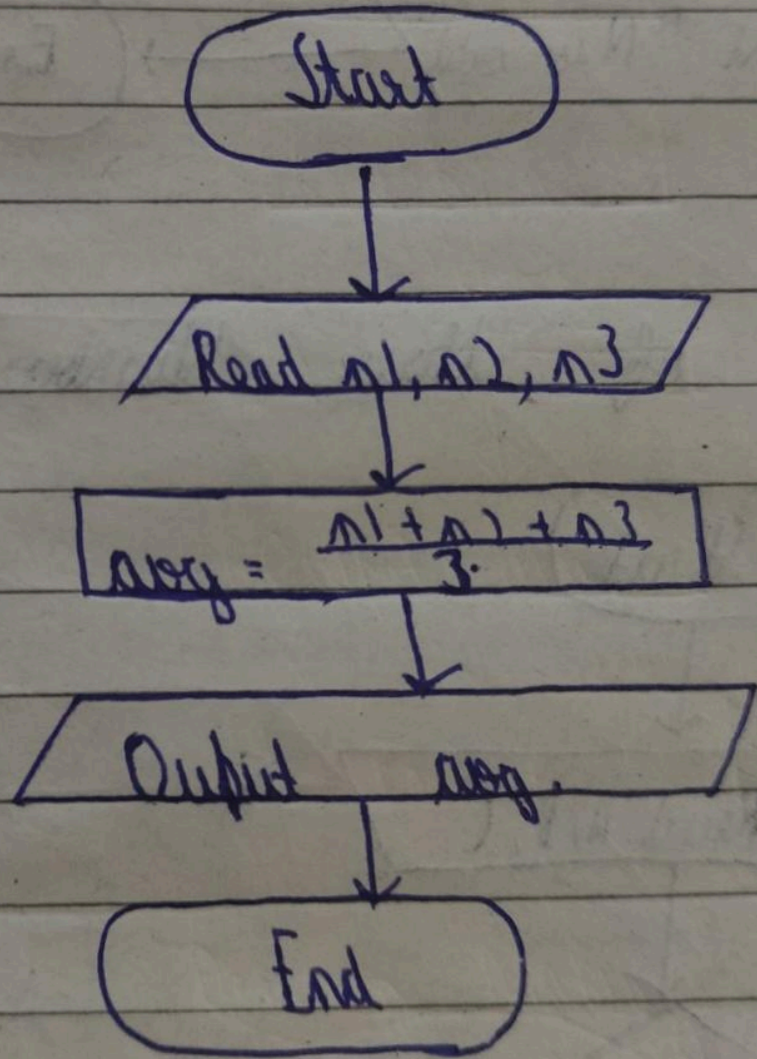 Start
Read n1, n2, n3
n1 + n2 + n3
avg = 3.
Ouput avg.
End